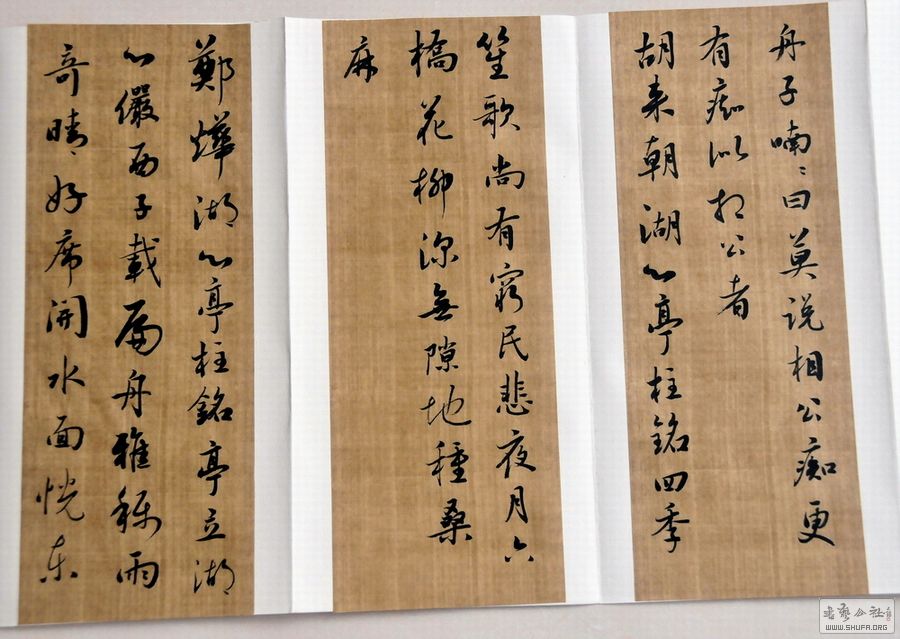 舟子喃〻曰莫说相公痴更
有痴似相公者
胡来朝湖心亭柱銘四季
笙歌尚有窮民悲夜月六
橋花柳深無隙地種桑
麻
鄭燁湖心亭柱銘亭立湖
心儼西子載扁舟雅称雨
奇晴〻好席開水面恍东
WWW.SHUFA.ORG